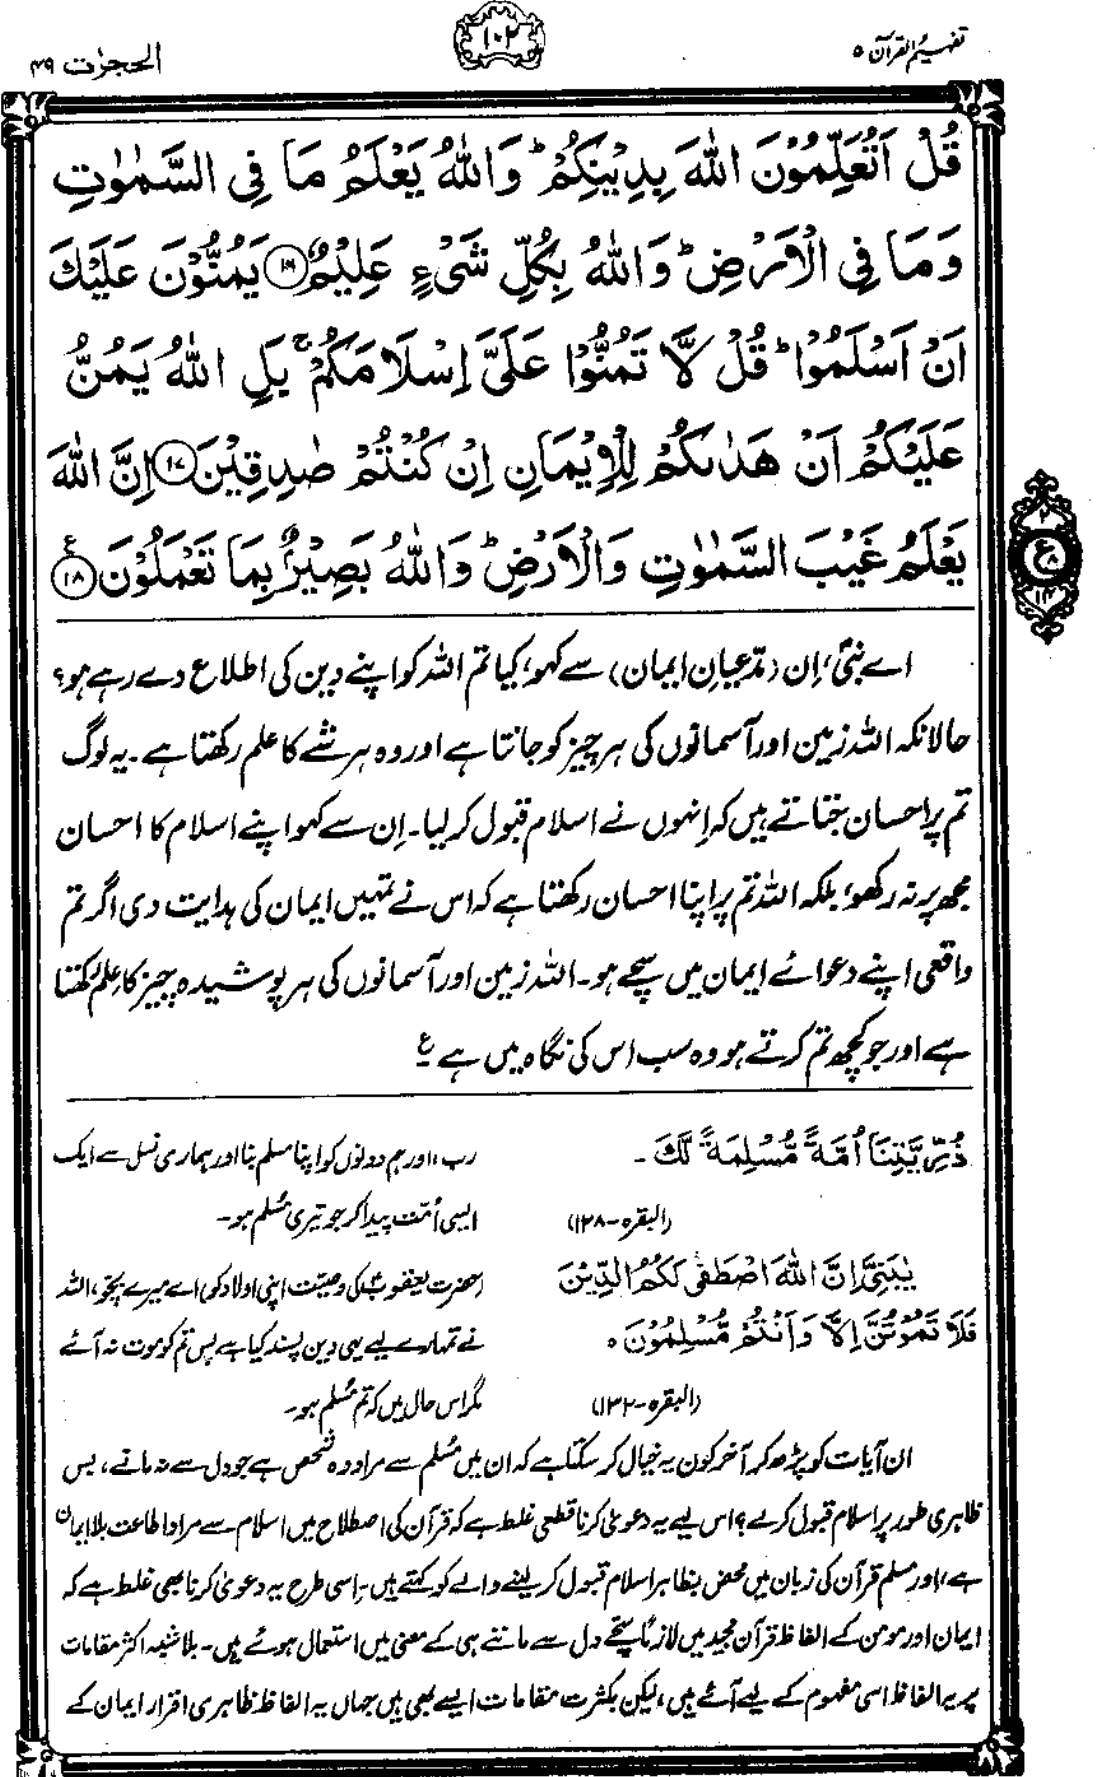 تفہیم القرآن ۵
۱۰۲
الحجرٰت ۴۹
قُلْ اَتُعَلِّمُوْنَ اللّٰهَ بِدِيْنِكُمْ ؕ وَاللّٰهُ يَعْلَمُ مَا فِي السَّمٰوٰتِ
وَمَا فِي الْاَرْضِ ؕ وَاللّٰهُ بِكُلِّ شَيْءٍ عَلِيْمٌ ۝۱۶ يَمُنُّوْنَ عَلَيْكَ
اَنْ اَسْلَمُوْا ؕ قُلْ لَّا تَمُنُّوْا عَلَيَّ اِسْلَامَكُمْ ۚ بَلِ اللّٰهُ يَمُنُّ
عَلَيْكُمْ اَنْ هَدٰىكُمْ لِلْاِيْمَانِ اِنْ كُنْتُمْ صٰدِقِيْنَ ۝۱۷ اِنَّ اللّٰهَ
يَعْلَمُ غَيْبَ السَّمٰوٰتِ وَالْاَرْضِ ؕ وَاللّٰهُ بَصِيْرٌۢ بِمَا تَعْمَلُوْنَ ۝۱۸ ع
۲
ع
۸
۱۴
اے نبیؐ، اِن (مدّعیانِ ایمان) سے کہو، کیا تم اللہ کو اپنے دین کی اطلاع دے رہے ہو؟
حالانکہ اللہ زمین اور آسمانوں کی ہر چیز کو جانتا ہے اور وہ ہر شے کا علم رکھتا ہے۔ یہ لوگ
تم پر احسان جتاتے ہیں کہ اِنہوں نے اسلام قبول کر لیا۔ اِن سے کہو اپنے اسلام کا احسان
مجھ پر نہ رکھو، بلکہ اللہ تم پر اپنا احسان رکھتا ہے کہ اس نے تمہیں ایمان کی ہدایت دی اگر تم
واقعی اپنے دعوائے ایمان میں سچے ہو۔ اللہ زمین اور آسمانوں کی ہر پوشیدہ چیز کا علم رکھتا
ہے اور جو کچھ تم کرتے ہو وہ سب اس کی نگاہ میں ہے ع
ذُرِّيَّتِنَا اُمَّةً مُّسْلِمَةً لَّكَ۔
(البقرہ-۱۲۸)
رب، اور ہم دونوں کو اپنا مسلم بنا اور ہماری نسل سے ایک
ایسی اُمّت پیدا کر جو تیری مُسلم ہو۔
يٰبَنِيَّ اِنَّ اللّٰهَ اصْطَفٰى لَكُمُ الدِّيْنَ
فَلَا تَمُوْتُنَّ اِلَّا وَاَنْتُمْ مُّسْلِمُوْنَ ٥
(البقرہ-۱۳۲)
(حضرت یعقوبؑ کی وصیّت اپنی اولاد کو) اے میرے بچّو، اللہ
نے تمہارے لیے یہی دین پسند کیا ہے پس تم کو موت نہ آئے
مگر اس حال میں کہ تم مُسلم ہو۔
ان آیات کو پڑھ کر آخر کون یہ خیال کر سکتا ہے کہ ان میں مُسلم سے مراد وہ شخص ہے جو دل سے نہ مانے، بس
ظاہری طور پر اسلام قبول کر لے؟ اس لیے یہ دعویٰ کرنا قطعی غلط ہے کہ قرآن کی اصطلاح میں اسلام سے مراد اطاعت بلا ایمان
ہے، اور مسلم قرآن کی زبان میں محض بظاہر اسلام قبول کر لینے والے کو کہتے ہیں۔ اِسی طرح یہ دعویٰ کرنا بھی غلط ہے کہ
ایمان اور مومن کے الفاظ قرآن مجید میں لازماً سچّے دل سے ماننے ہی کے معنی میں استعمال ہوئے ہیں۔ بلا شبہ اکثر مقامات
پر یہ الفاظ اسی مفہوم کے لیے آئے ہیں، لیکن بکثرت مقامات ایسے بھی ہیں جہاں یہ الفاظ ظاہری اقرار ایمان کے